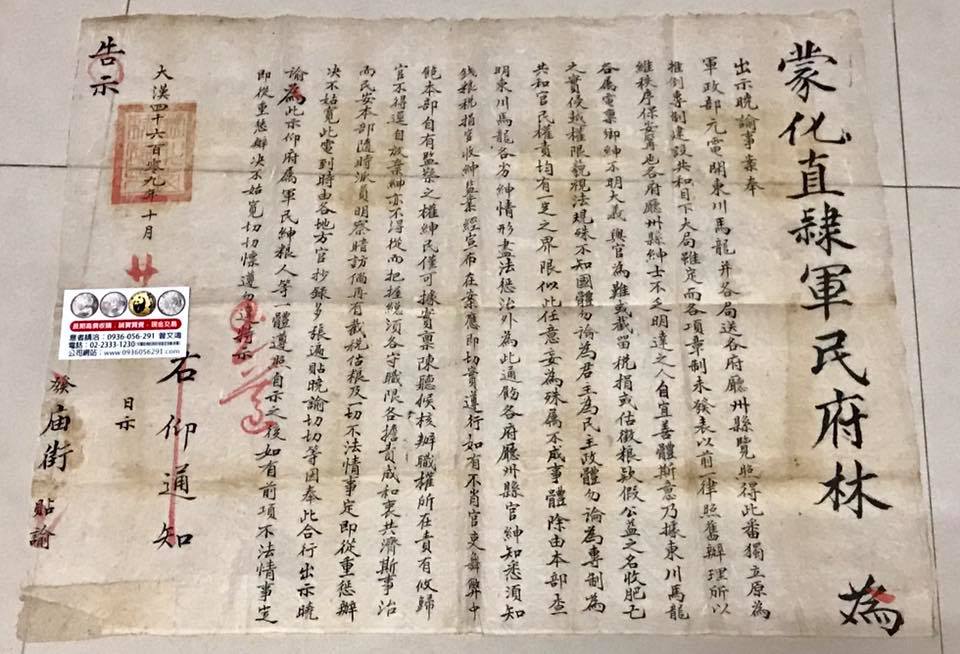 蒙化直隸軍民府林 為
出示曉諭事案奉
軍政部元電開東川馬龍并各局送各府廳州縣覽照得此番獨立原為
推倒專制建設共和目下大局雖定而各項章制未發表以前一律照舊辦理所以
維秩序保安甯也各府廳州縣紳士不乏明達之人自宜善體斯意乃據東川馬龍
各屬電稟鄉紳不明大義與官為難或截留稅捐或估徵糧款假公益之名收肥己
之實侵越權限藐視法規殊不知國體勿論為君主為民主政體勿論為專制為
共和官民權責均有一定之界限似此任意妄為殊屬不成事體除由本部查
明東川馬龍各劣紳情形盡法懲治外為此通飭各府廳州縣官紳知悉須知
錢糧稅捐官收紳監業經宣布在案應即切實遵行如有不肖官吏舞弊中
飽本部自有監察之權紳民僅可據實稟陳聽候核辦職權所在責有攸歸
官不得逕自放棄紳亦不得從而把握總須各守職限各擔責成和衷共濟斯事治
而民安本部隨時派員明察暗訪倘再有截稅估糧及一切不法情事定即從重懲辦
決不姑寬此電到時由各地方官抄錄多張遍貼曉諭切切等因奉此合行出示曉
諭為此示仰府屬軍民紳糧人等一體遵照自示之後如有前項不法情事定
即從重懲辦決不姑寬切切懍遵勿違特示
右仰通知
大漢四十六百零九年十月 廿
日示
告示
發 庙街 貼諭
長期高價收購．誠實買賣．現金交易
意者請洽：0936-056-291 曾文鴻
電話：02-2333-1230
公司網站：www.0936056291.com